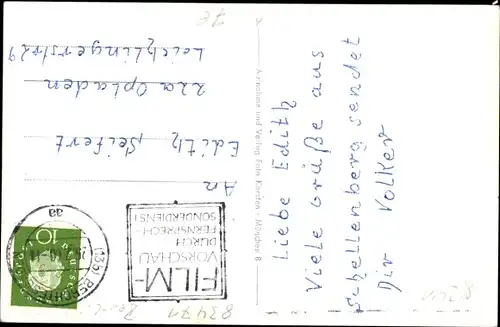 Liebe Edith
Viele Grüße aus
Schellenberg sendet
Dir Volker
Aufnahme und Verlag Foto Kürsten - München 8
FILM-
VORSCHAU
DURCH
FERNSPRECH-
SONDERDIENST
10
An
Edith Seifert
22a Opladen
Leichlingerstr 29
83471